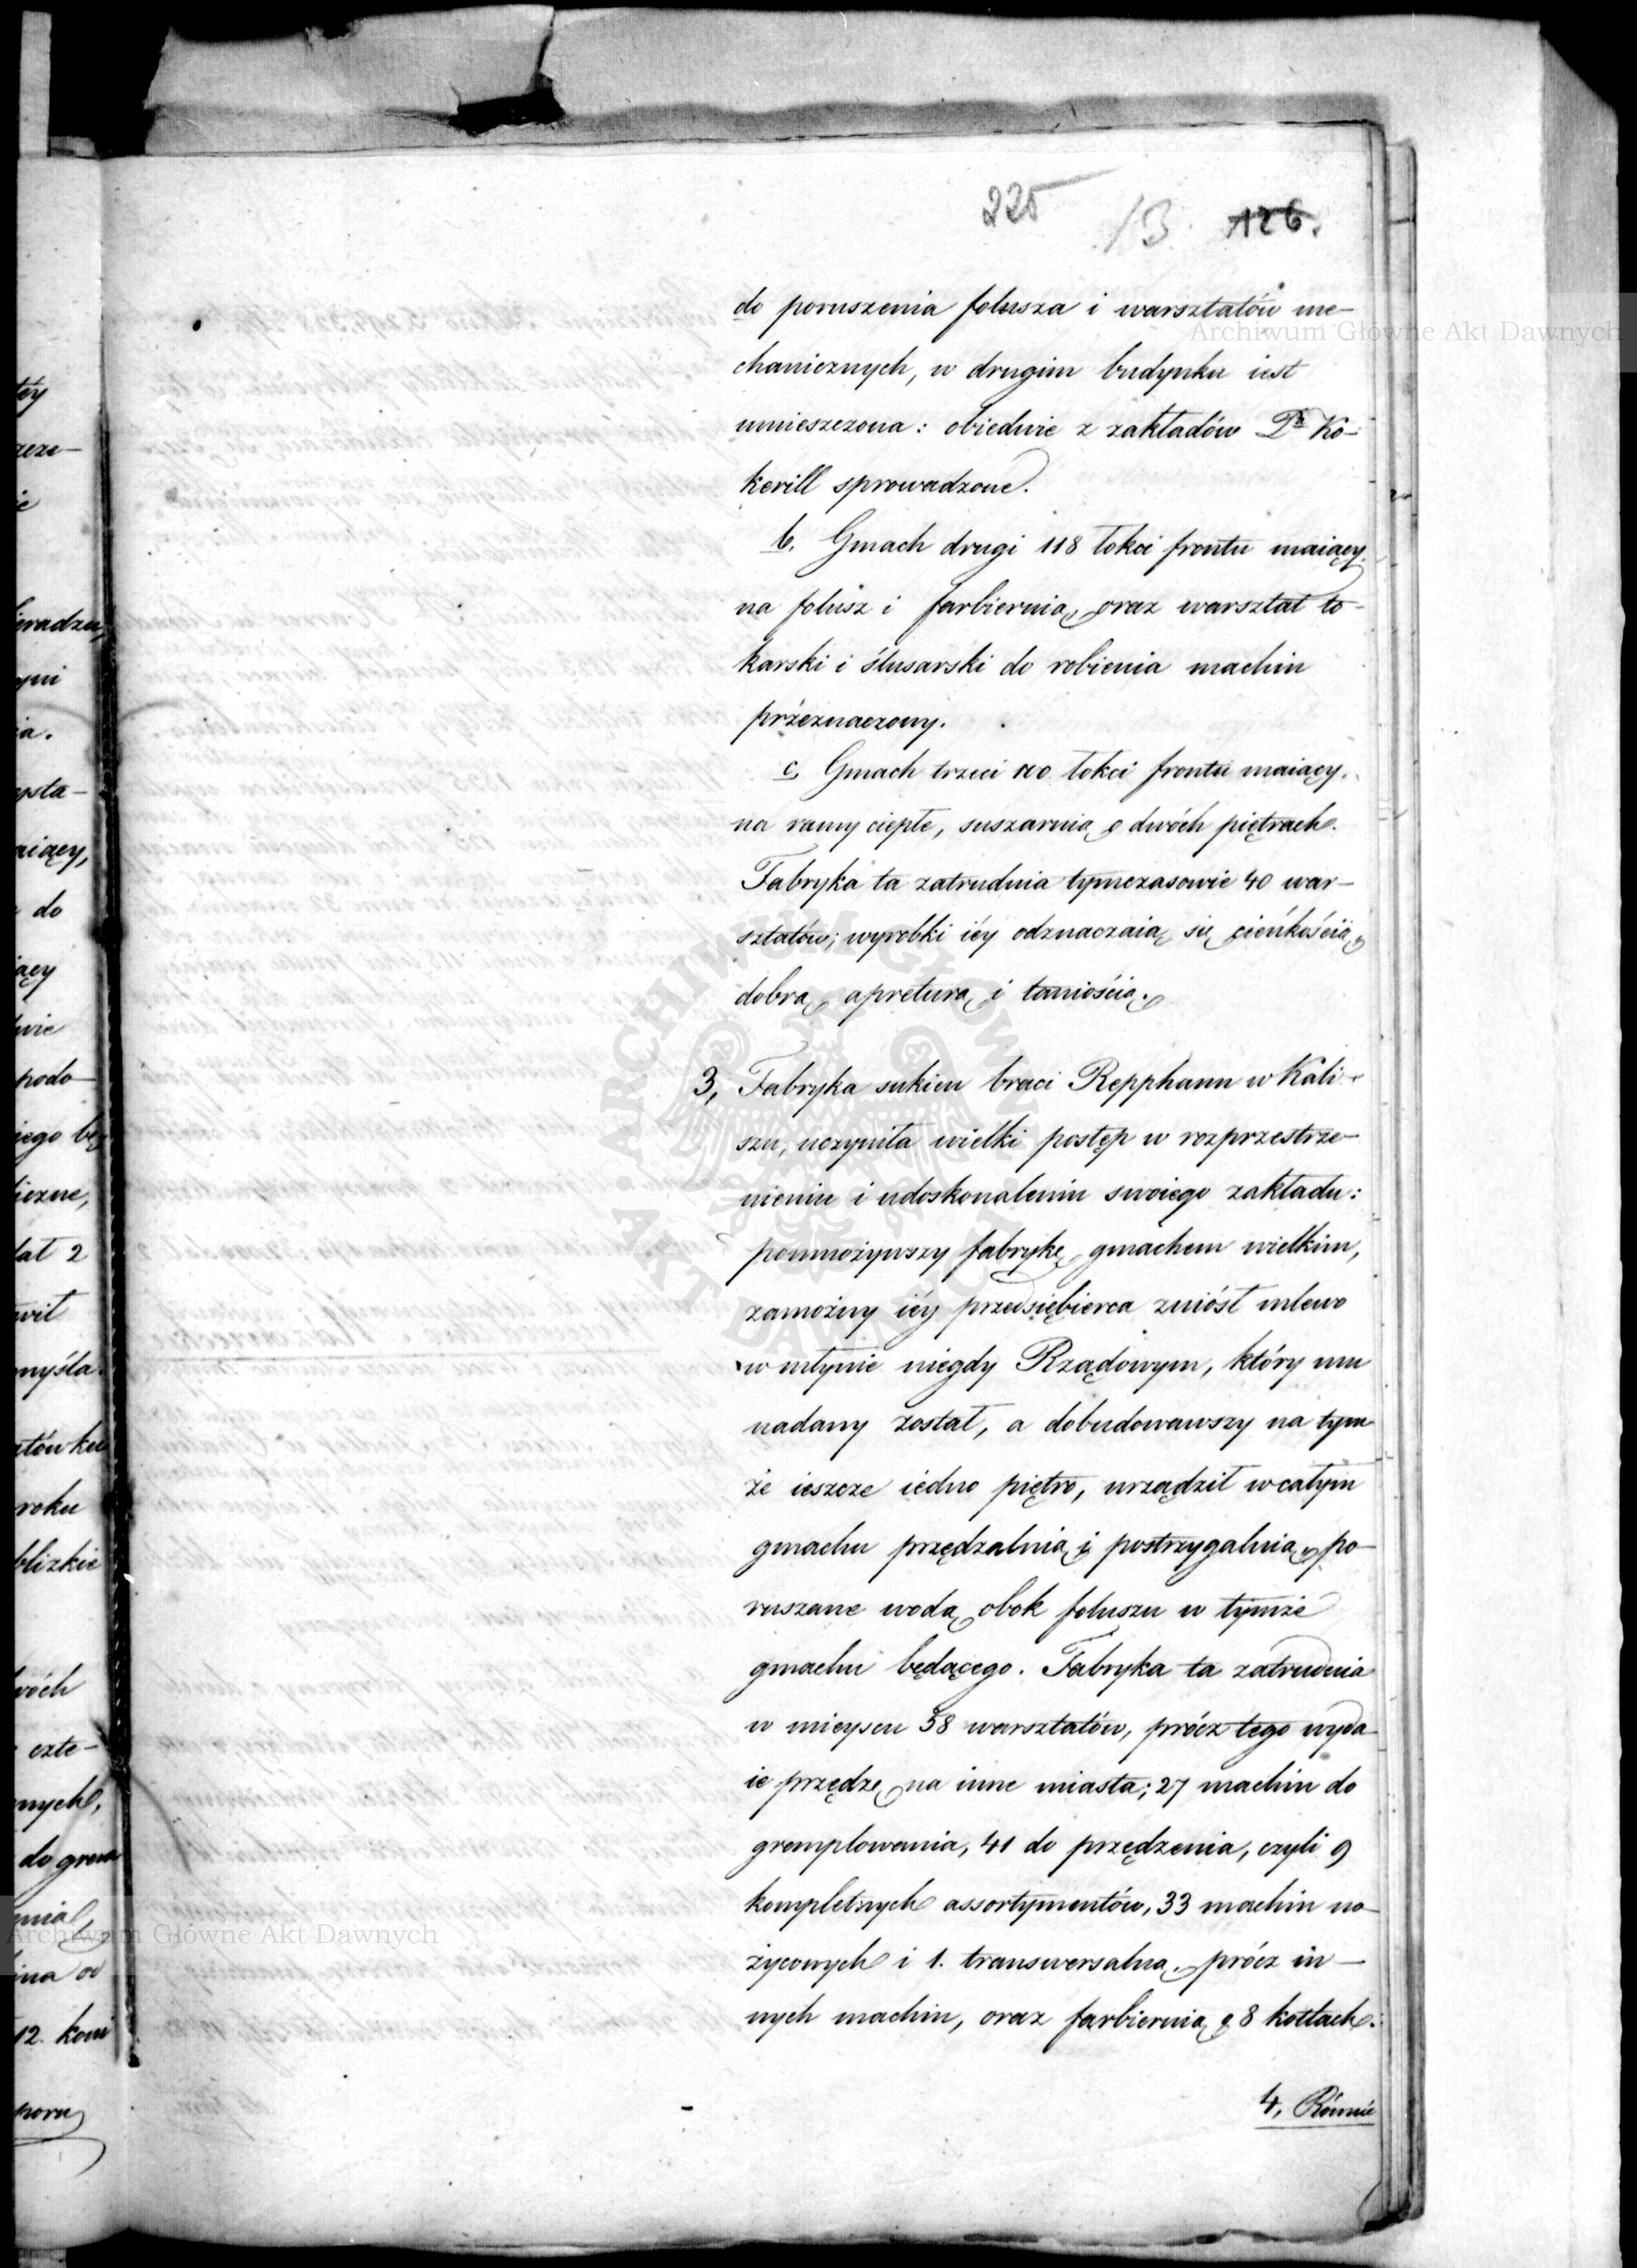 225 13 126.
do poruszenia folusza i warsztatów me-
chanicznych, w drugim budynku iest
umieszczona: obiedwie z zakładów Pa Ko-
kerill sprowadzone.
b. Gmach drugi 118 łokci frontu maiący,
na folusz i farbiernią, oraz warsztat to-
karski i ślusarski do robienia machin
przeznaczony.
c, Gmach trzeci 110 łokci frontu maiący,
na ramy ciepłe, suszarnią o dwóch piętrach.
Fabryka ta zatrudnia tymczasowie 40 war-
sztatów; wyrobki iéy odznaczaią się cieńkością,
dobrą apreturą i taniością.
3, Fabryka sukien braci Repphann w Kali-
szu, uczyniła wielki postęp w rozprzestrze-
nieniu i udoskonaleniu swoiego zakładu:
pomnożywszy fabrykę gmachem wielkim,
zamożny iéy przedsiębierca zniósł mlewo
w młynie niegdy Rządowym, który mu
nadany został, a dobudowawszy na tym
że ieszcze iedno piętro, urządził w całym
gmachu przędzalnią i postrzygalnią, po-
ruszane wodą obok foluszu w tymże
gmachu będącego. Fabryka ta zatrudnia
w mieyscu 58 warsztatów, prócz tego wyda-
ie przędzę na inne miasta; 27 machin do
gremplowania, 41 do przędzenia, czyli 9
kompletnych assortymentów, 33 machin no-
życowych i 1. transwersalną, prócz in-
nych machin, oraz farbiernią o 8 kotłach.
4, Równie
téy
ie
ieradzu,
ymi
ia.
ysta-
aiący,
do
iący
wie
podo-
iego bę
iczne,
łat 2
wił
myśla.
atów ku
roku
blizkie
wóch
exte-
nych,
do grem
enia,
ina do
12. koni
poru
Archiwum Główne Akt Dawnych
Archiwum Główne Akt Dawnych
ARCHIWUM GŁÓWNE AKT DAWNYCH